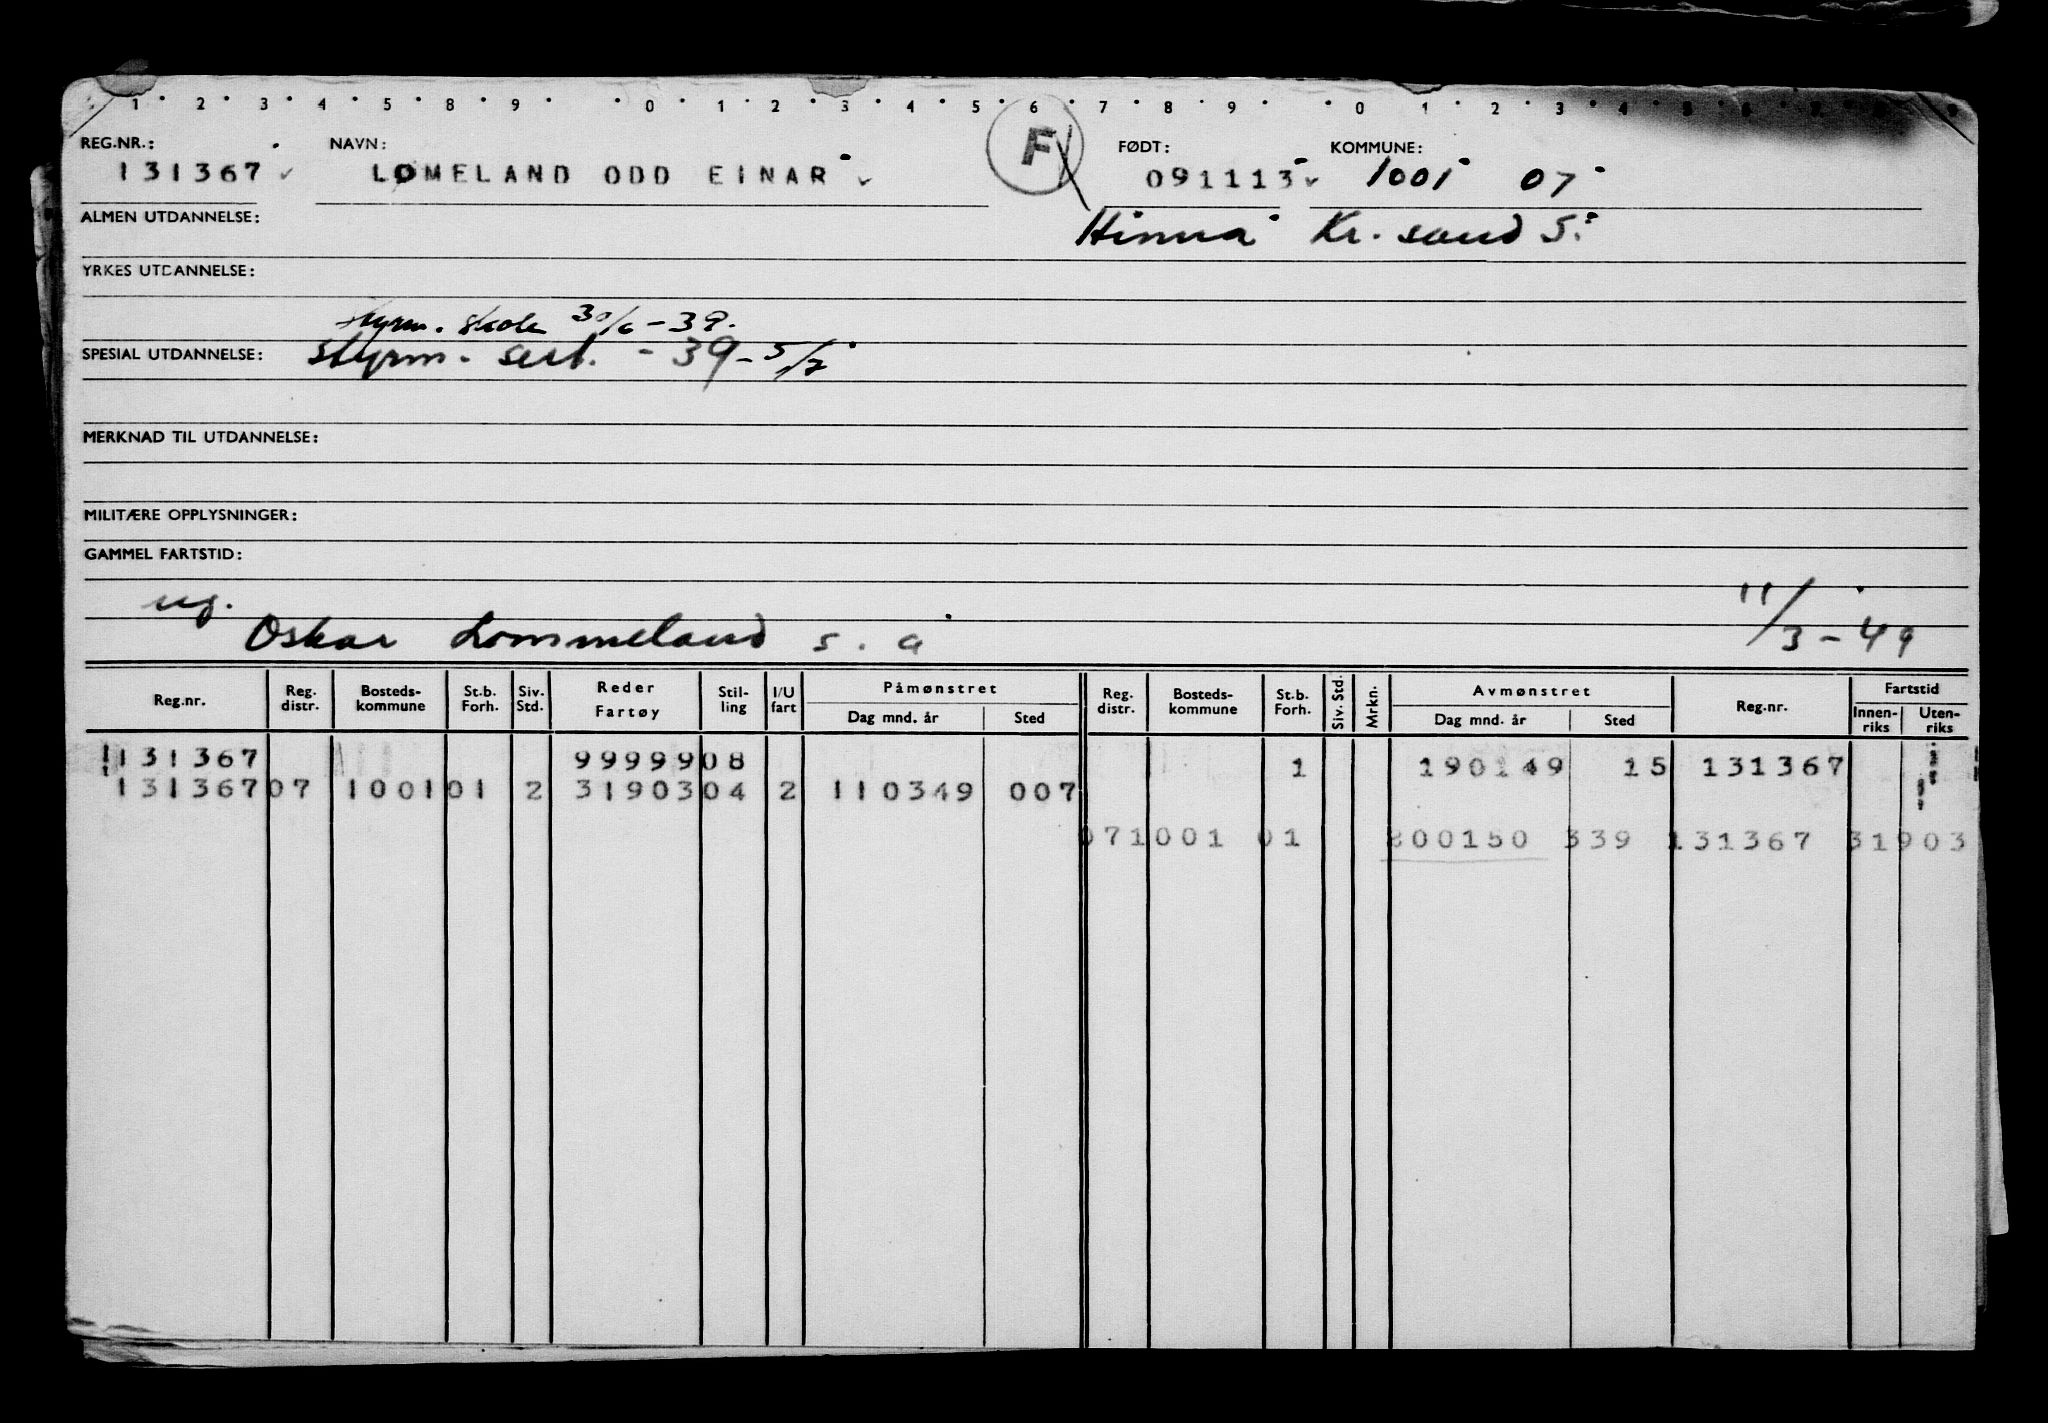 1 2 3 4 5 8 9 0 1 2 3 4 5 6 7 8 9 0 1 2 3 4 5 6 7 8 9
REG.NR.: NAVN: F FØDT: KOMMUNE:
131367 LØMELAND ODD EINAR 091113 1001 07
ALMEN UTDANNELSE: Hinna Kr. sand S.
YRKES UTDANNELSE:
styrm. skole 30/6-39.
SPESIAL UTDANNELSE: styrm. sert. -39-5/7
MERKNAD TIL UTDANNELSE:
MILITÆRE OPPLYSNINGER:
GAMMEL FARTSTID:
ug.
Oskar Lommeland s. a 11/3-49
Reg.nr. Reg. distr. Bosteds- kommune St.b. Forh. Siv. Std. Reder Fartøy Stil- ling I/U fart Påmønstret Dag mnd. år Sted Reg. distr. Bosteds- kommune St.b. Forh. Siv. Std. Mrkn. Avmønstret Dag mnd. år Sted Reg.nr. Fartstid Innen- riks Uten- riks
131367 99999 08 1 190149 15 131367
131367 07 1001 01 2 31903 04 2 110349 007
07 1001 01 200150 339 131367 31903